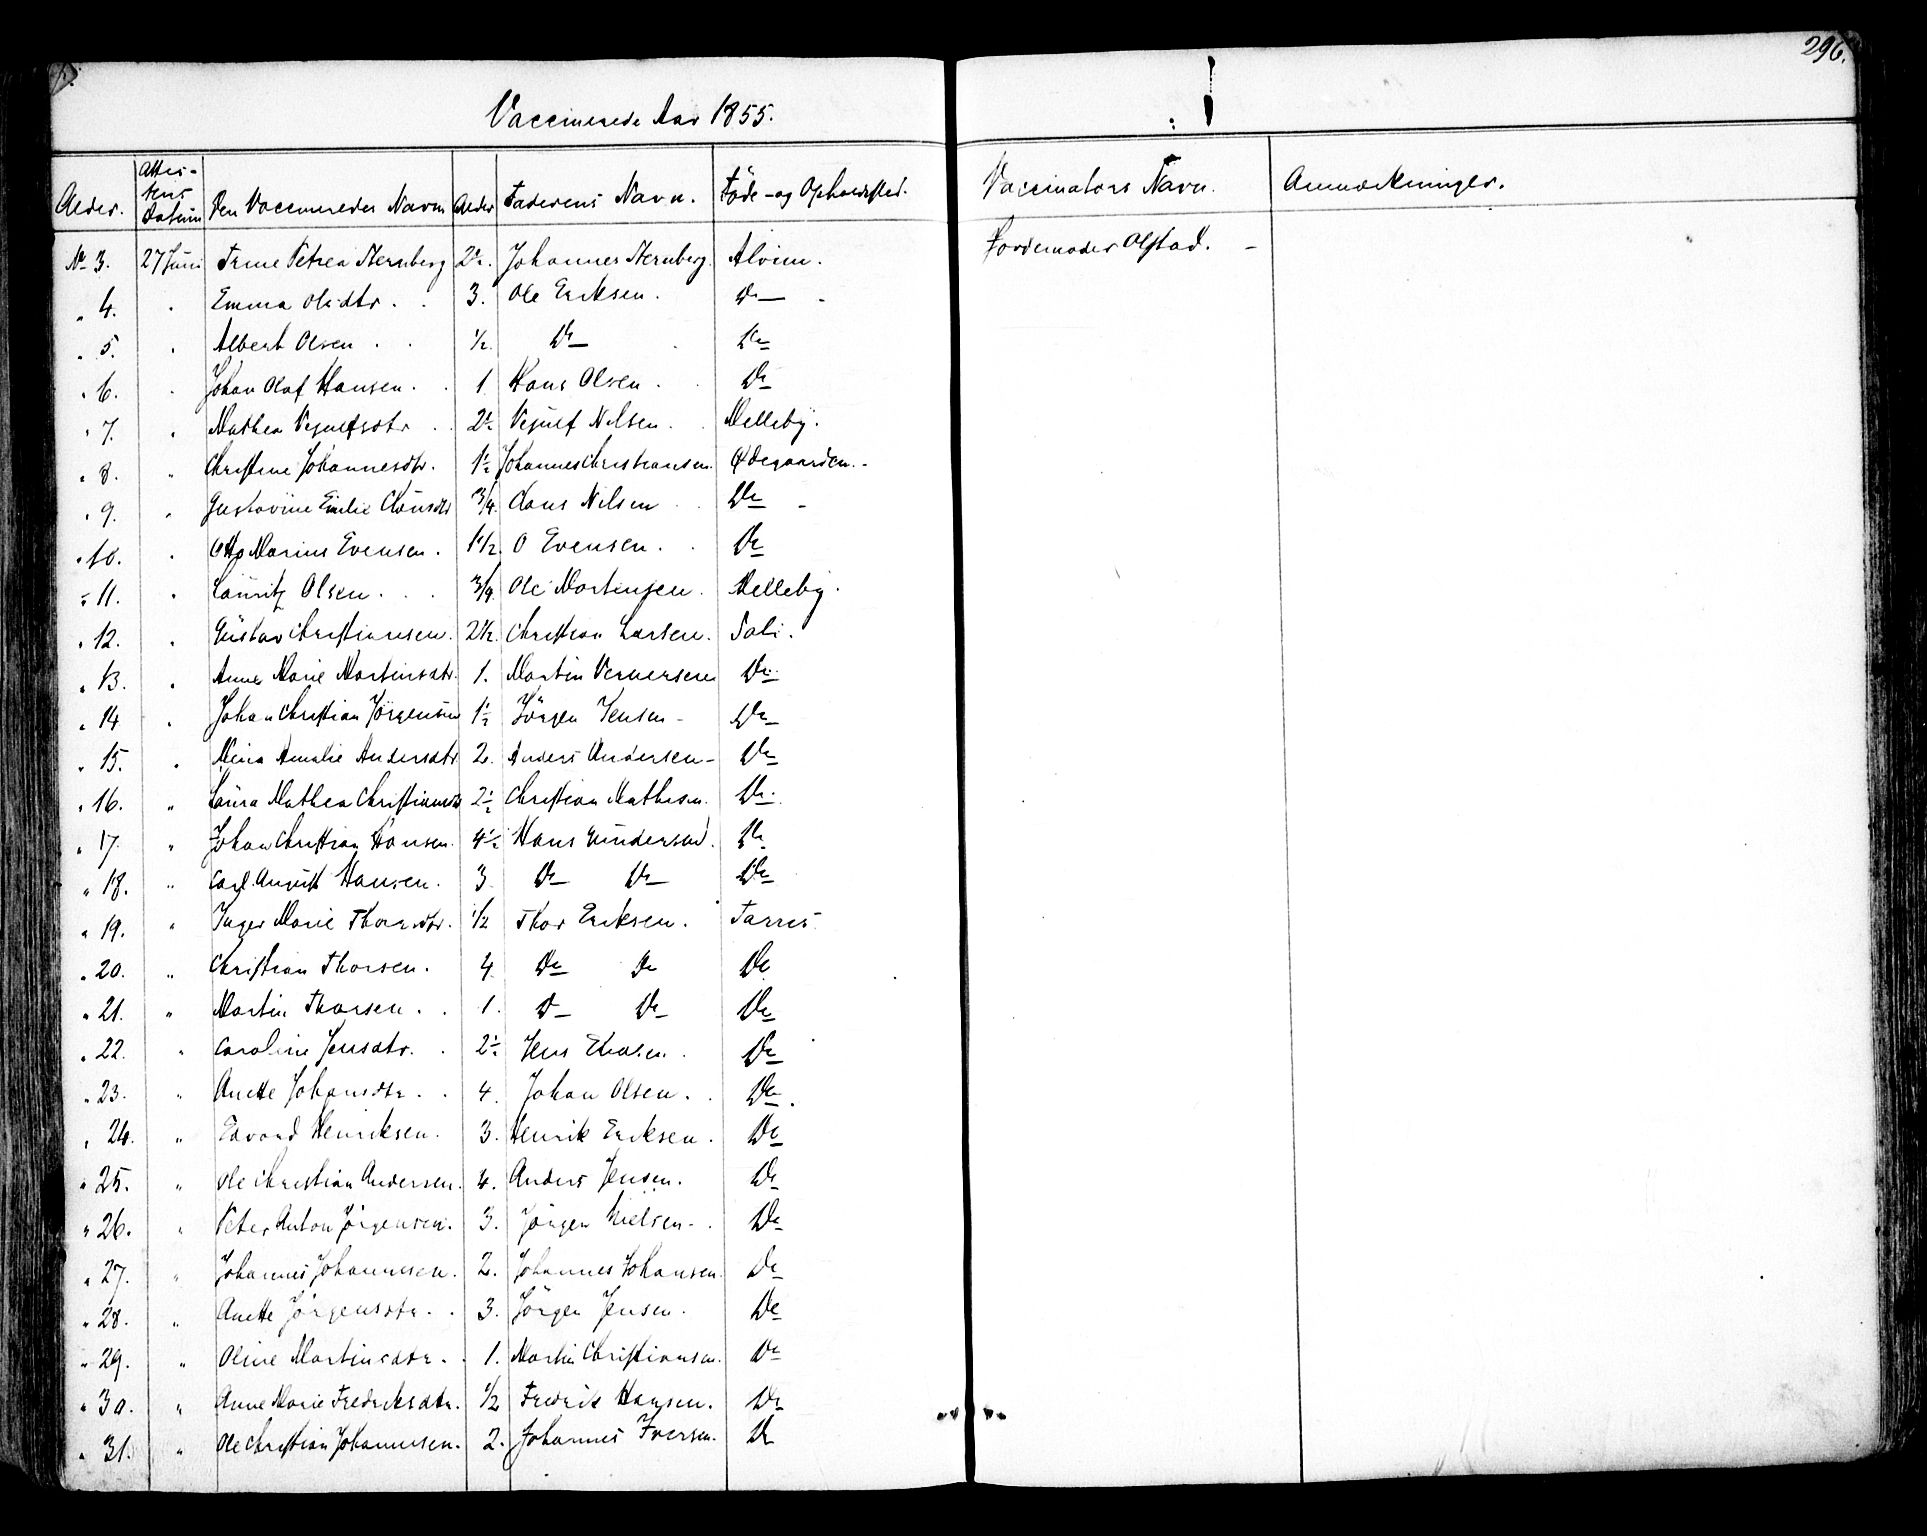 296.
Vaccinerede Aar 1855.
Alder. Attestens Datum Den Vaccineredes Navn Alder Faderens Navn. Føde- og Opholdsted. Vaccinators Navn. Anmærkninger.
No 3. 27 Juni Petrea Sternberg 2½. Johannes Sternberg. Alvim. Jordemoder Olstad. -
" 4. " Emma Olsdtr. 3. Ole Eriksen. Do -
" 5. " Albert Olsen 1/2. Do Do
" 6. " Johan Olaf Hansen. 1 Hans Olsen. Do
" 7. " Mathea 2½ Nilsen. Melleby.
" 8. " Christine Johannesdtr. 1½ Johannes Christiansen. Ødegaarden. -
" 9. " Gustavine Emilie Clausdtr 3/4. Claus Nilsen Do -
" 10. " Otto Marius Evensen. 1 1/2. O Evensen. Do
" 11. " Lauritz Olsen. 3/4. Ole Mortensen. Melleby.
" 12. " Gustav Christiansen. 2 1/2. Christian Larsen. Sali.
" 13. " Anne Marie Martinsdtr. 1. Martin Vernersen Do
" 14 " Johan Christian Jörgensen 1½ Jörgen Jensen - Do
" 15. " Mina Amalie Andersdtr 2. Anders Andersen - Do
" 16. " Laura Mathea Christiansdtr 2½ Christian Mathisen. Do
" 17. " Johan Christian Hansen. 4½ Hans Gundersen. Do
" 18. " Carl August Hansen. 3 Do Do Do
" 19. " Inger Marie Thorsdtr. 1/2 Thor Eriksen. Tarris
" 20. " Christian Thorsen. 4 Do Do Do
" 21. " Martin Thorsen. 1. Do Do Do
" 22. " Caroline Jensdtr. 2½ Jens Do
" 23. " Anette Johansdtr. 4. Johan Olsen. Do.
" 24. " Edvard Henriksen. 3. Henrik Eriksen. Do
" 25. " Ole Christian Andersen. 4. Anders Jensen. Do
" 26. " Peter Anton Jörgensen. 3. Jörgen Nielsen. Do
" 27. " Johannes Johannesen. 2. Johannes Johansen. Do
" 28. " Anette Jörgensdtr. 3. Jörgen Jensen. Do
" 29. " Oline Martinsdtr. 1. Martin Christiansen. Do
" 30. " Anne Marie Frederiksdtr. 1/2 Fredrik Hansen. Do
" 31. " Ole Christian Johannesen. 2. Johannes Iversen. Do